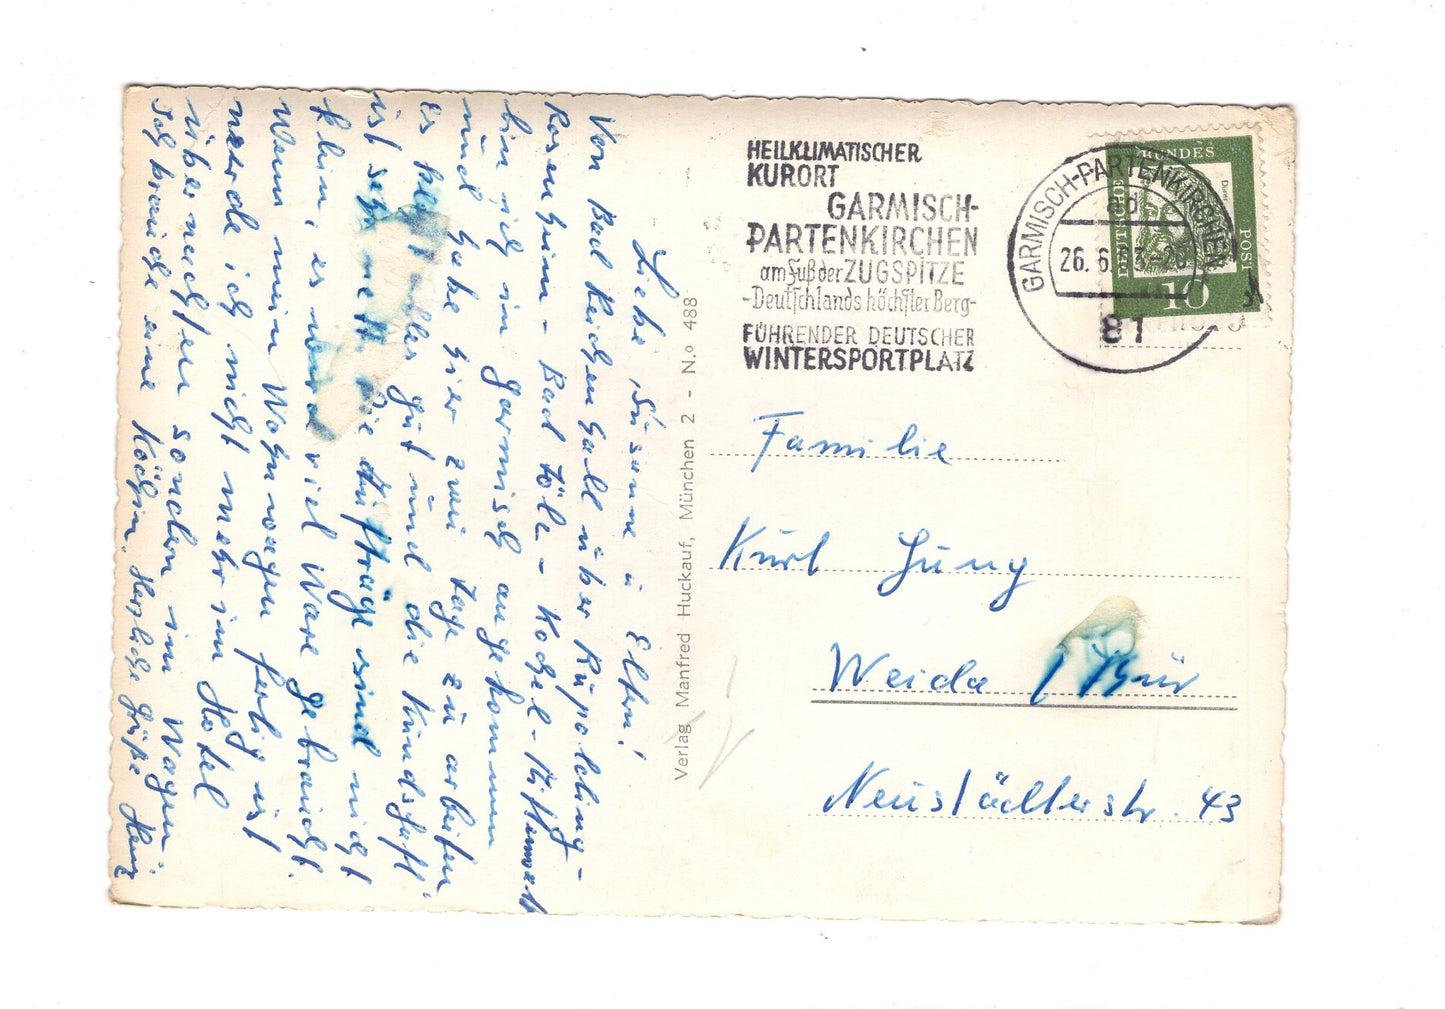 Liebe Susanne u Eltern!
Von Bad Reichenhall über Ruhpolding –
Rosenheim – Bad Tölz – Kochel – Mittenwald
bin ich in Garmisch angekommen
und habe hier zwei Tage zu arbeiten
Es alles gut und die Kundschaft
ist sehr nett. Die Aufträge sind nicht
klein, es wird viel Ware gebraucht.
Wenn mein Wohnwagen fertig ist
werde ich nicht mehr im Hotel
übernachten sondern im Wagen.
Ich brauche eine Köchin. Herzliche Grüße Heinz
Verlag Manfred Huckauf, München 2 - N.o 488
HEILKLIMATISCHER
KURORT
GARMISCH-
PARTENKIRCHEN
am Fuß der ZUGSPITZE
-Deutschlands höchster Berg-
FÜHRENDER DEUTSCHER
WINTERSPORTPLATZ
GARMISCH-PARTENKIRCHEN
ad
26. 6.
81
DEUTSCHE BUNDESPOST
10
Familie
Kurt Jung
Weida / Thür
Neustädterstr. 43